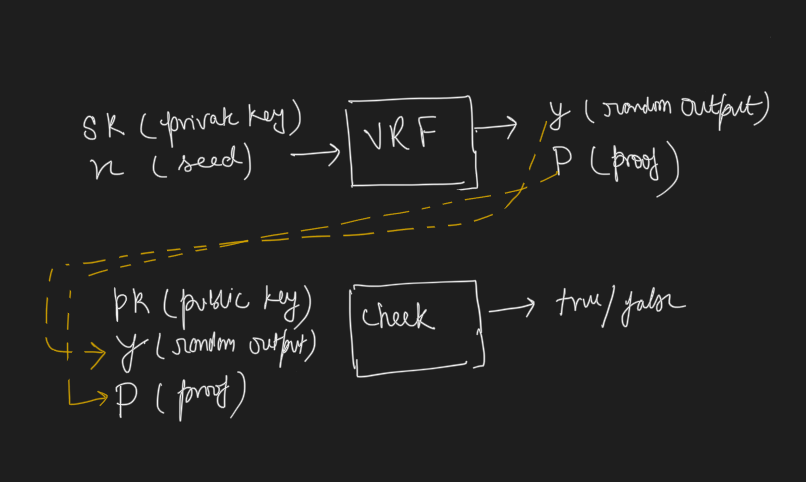 SK (private key)
x (seed)
VRF
y (random output)
P (proof)
PK (public key)
y (random output)
P (proof)
check
true/false